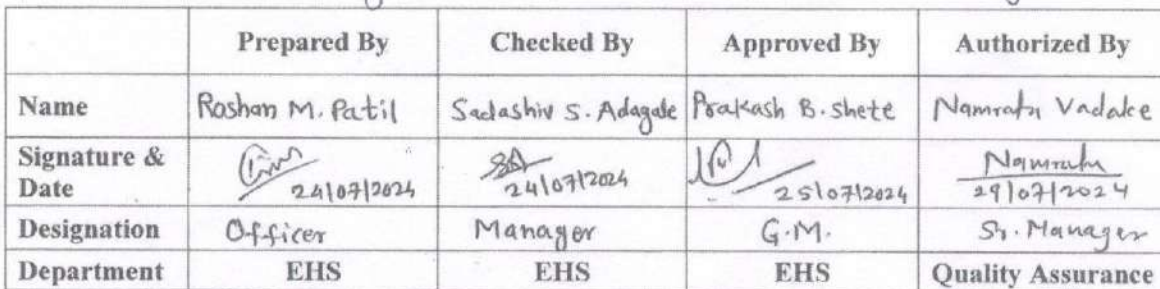 Prepared By Checked By Approved By Authorized By
Name Roshan M. Patil Sadashiv S. Adagale Prakash B. Shete Namrata Vadake
Signature & 24/07/2024 24/07/2024 25/07/2024 Namrata
Date 29/07/2024
Designation Officer Manager G.M. Sr. Manager
Department EHS EHS EHS Quality Assurance